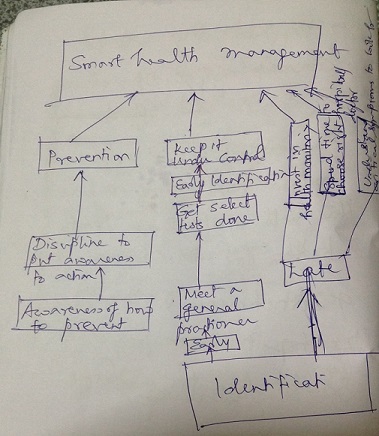 Smart health management
Prevention
Keep it
under control
Early Identification
Get select
tests done
Invest in
health monitors
Spend time to
choose right hospital/
doctor
Discipline to
put awareness
to action
Awareness of how
to prevent
Meet a
general
practioner
Early
Late
Identificati